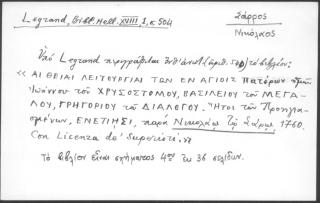 Legrand, Bibl. Hell. XVIII 1, σ. 504
Σάρρος
Νικόλαος
Ὑπὸ Legrand περιγράφεται ὑπ' ἀριθ. τὸ βιβλίον:
« ΑΙ ΘΕΙΑΙ ΛΕΙΤΟΥΡΓΙΑΙ ΤΩΝ ΕΝ ΑΓΙΟΙΣ Πατέρων ἡμῶν
Ἰωάννου τοῦ ΧΡΥΣΟΣΤΟΜΟΥ, ΒΑΣΙΛΕΙΟΥ τοῦ ΜΕΓΑ-
ΛΟΥ, ΓΡΗΓΟΡΙΟΥ τοῦ ΔΙΑΛΟΓΟΥ. Ἤτοι τῶν Προηγια-
σμένων, ΕΝΕΤΙΗΣΙ, παρὰ Νικολάῳ τῷ Σάρῳ 1760.
Con Licenza de' Superiori. »
Τὸ βιβλίον εἶναι σχήματος 4ου ἐκ 36 σελίδων.